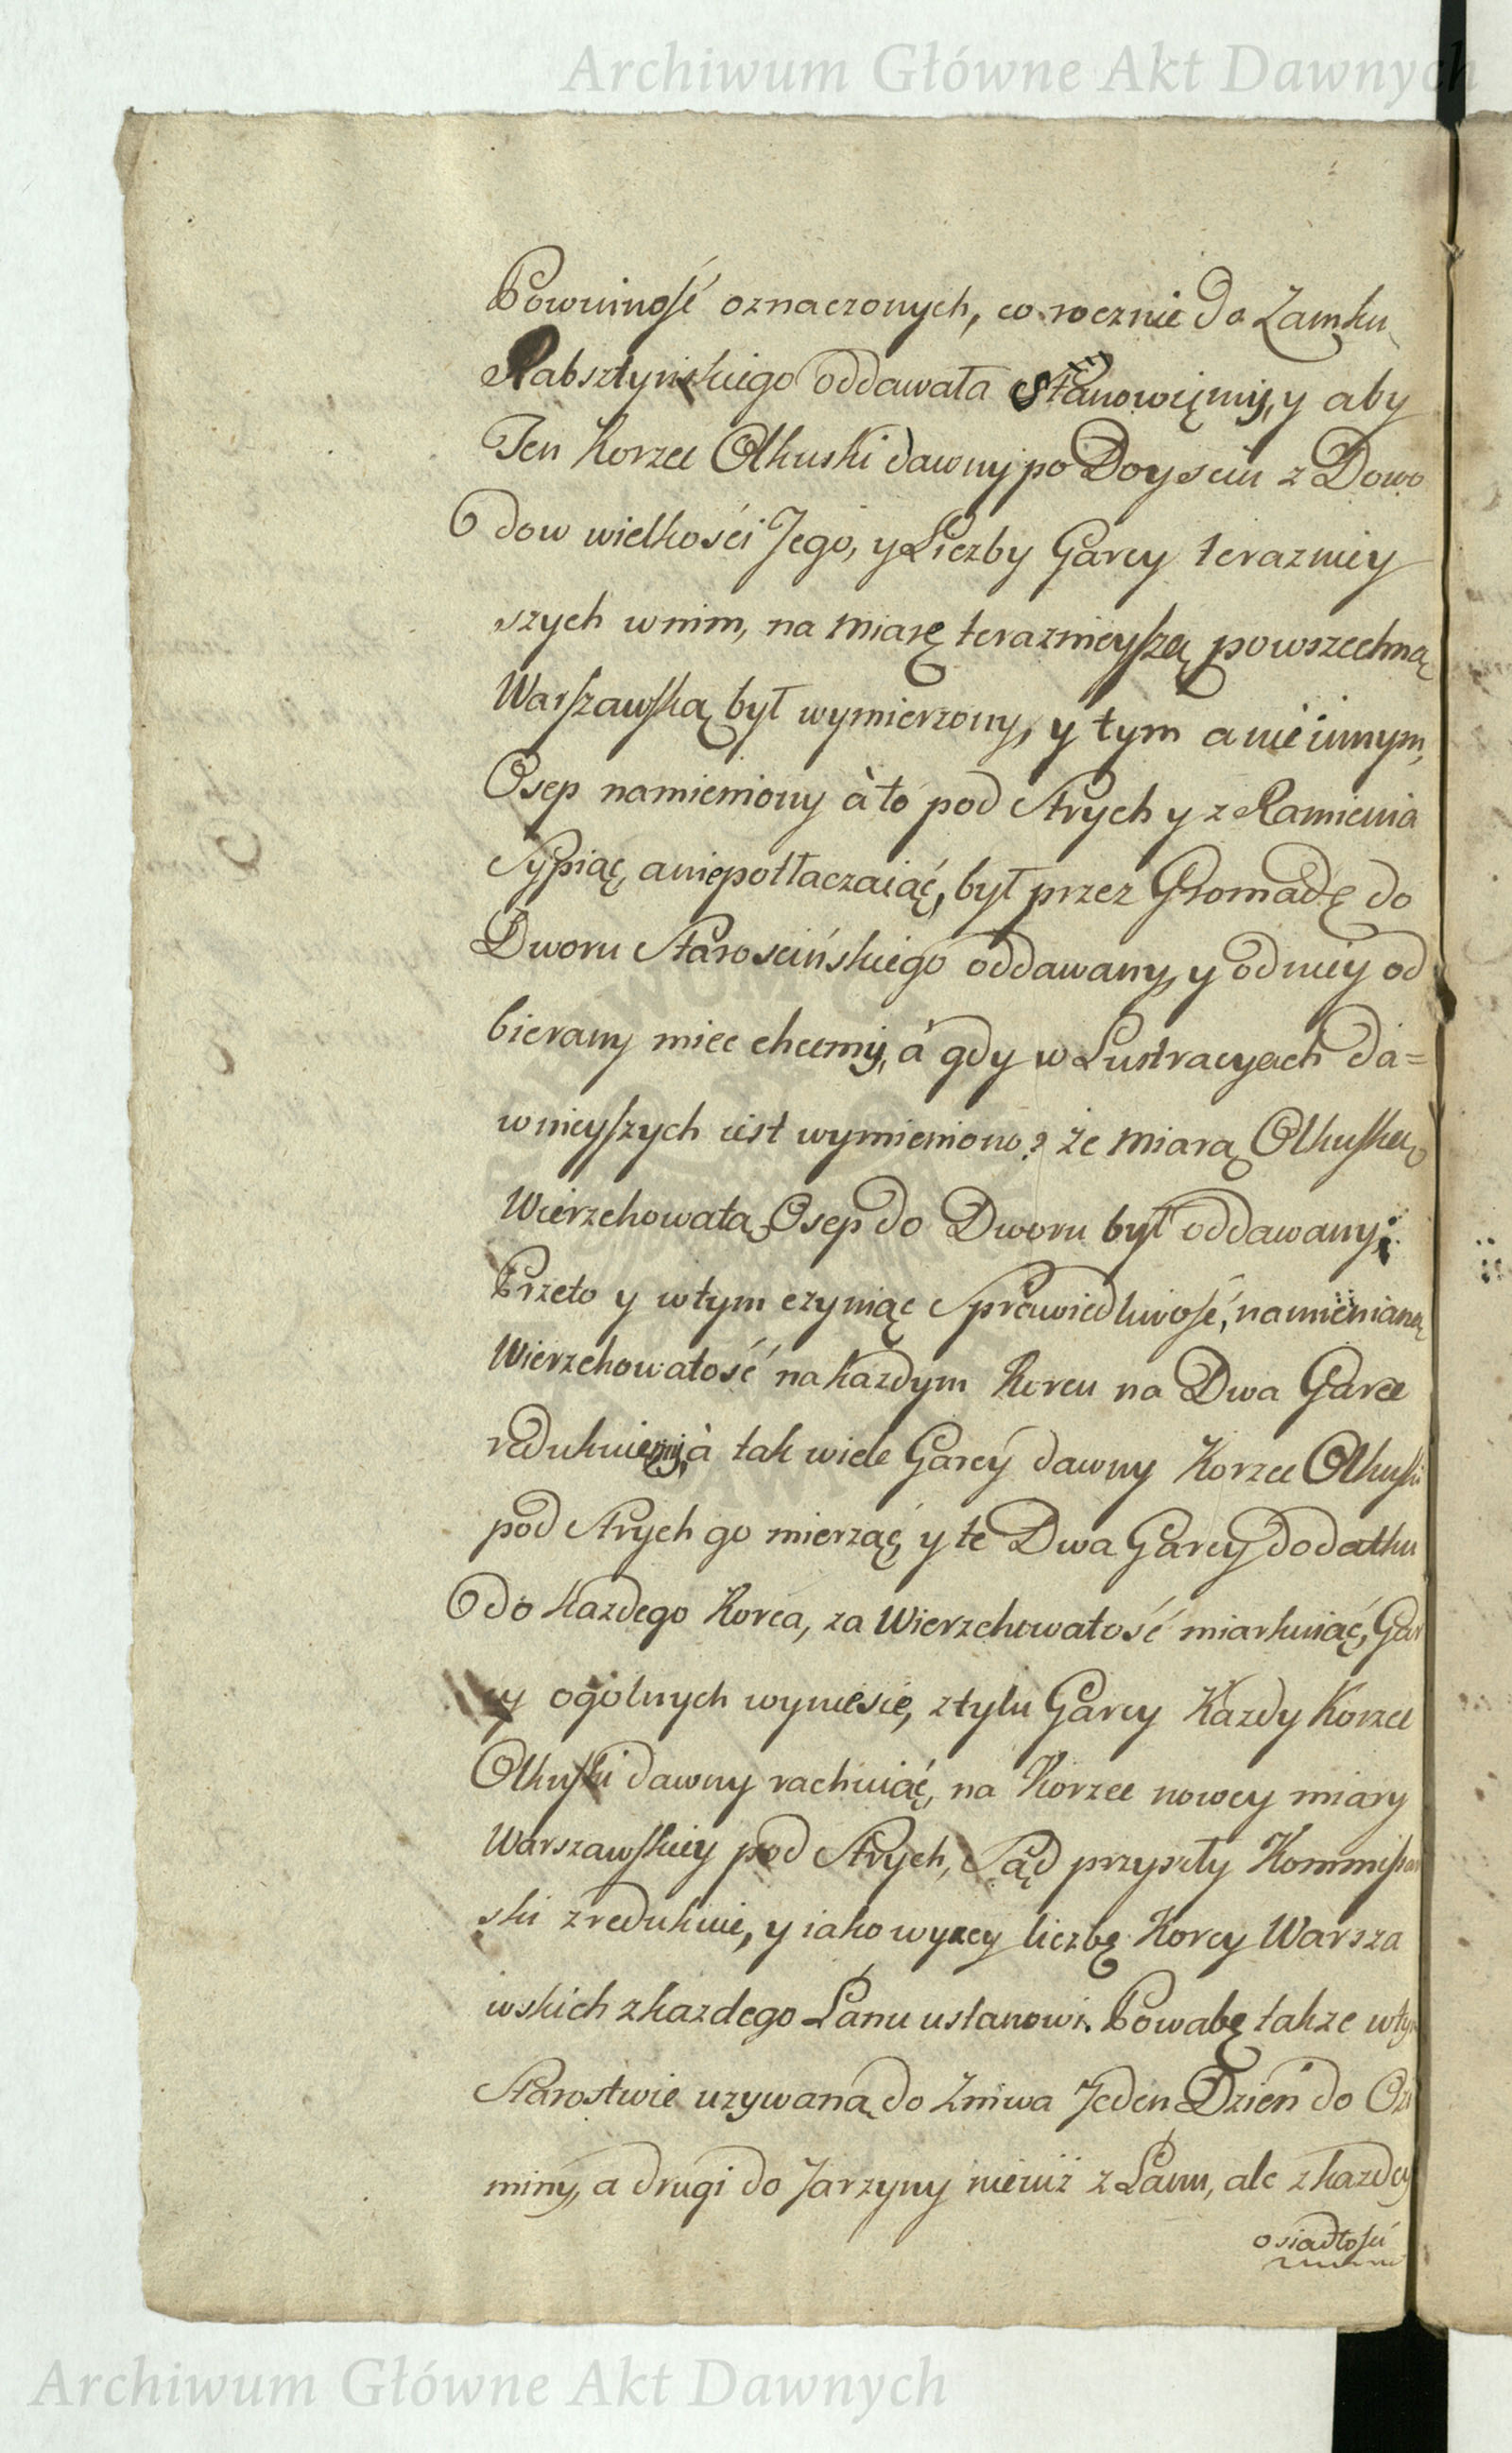 Archiwum Główne Akt Dawnych
Powinność oznaczonych, co rocznie do Zamku
Rabsztynskiego oddawała stanowięmy, y aby
Ten Korzec Olkuski dawny po Doysciu z Dowo
dow wielkości Jego, y Liczby Garcy terazniey
szych w nim, na miarę teraznieyszą powszechną
Warszawską był wymierzony, y tym a nie innym,
Osep namieniony à to pod Strych y z Ramienia
Sypiąc, a niepotłaczaiąć, był przez Gromadę do
Dworu Starościńskiego oddawany, y od niey od
bierany miec chcemy, á gdy w Lustracyach da=
wnieyszych iest wymieniono? że miarą Olkuską
Wierzchowatą Osep do Dworu był oddawany;
Przeto y w tym czyniąc Sprawiedliwość, namienianą
Wierzchowatość na każdym Korcu na Dwa Garce
redukuiemy, à tak wiele Garcy dawny Korzec Olkuski
pod Strych go mierząć, y te Dwa Garcy dodatku
do każdego Korca, za Wierzchowatość miarkuiąć, Gar
cy ogolnych wyniesie, z tylu Garcy Kazdy Korzec
Olkuski dawny rachuiąć, na Korzec nowey miary
Warszawskiey pod Strych, Sąd przyszły Kommissar
ski zredukuie, y iako wyzey liczbę Korcy Warsza
wskich z kazdego Łanu ustanowi. Powabę takze w tym
Starostwie uzywaną do Zniwa Jeden Dzień do Ozi
miny, a drugi do Jarzyny nie iuż z Łanu, ale z kazdey
osiadłości
Archiwum Główne Akt Dawnych